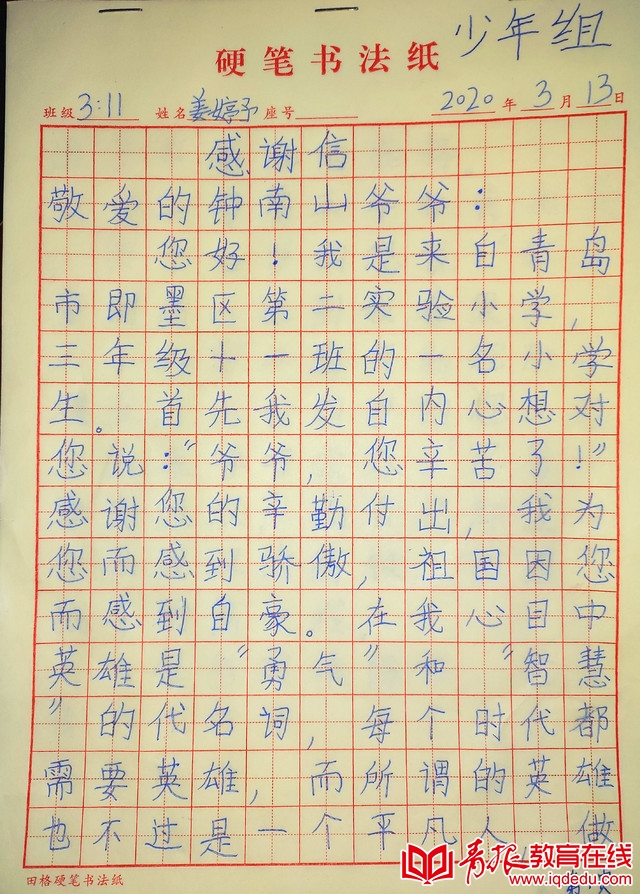 少年组
硬笔书法纸
班级 3:11 姓名 姜婷予 座号 2020年3月13日
感谢信
敬爱的钟南山爷爷：
您好！我是来自青岛
市即墨区第二实验小学，
三年级十一班的一名小学
生。首先我发自内心想对
您说：“爷爷，您辛苦了！”
感谢您的辛勤付出，我为
您而感到骄傲，祖国因您
而感到自豪。在我心目中
英雄是“勇气”和“智慧
”的代名词，每个时代都
需要英雄，而所谓的英雄
也不过是一个平凡人，做
田格硬笔书法纸
青报教育在线
www.iqdedu.com